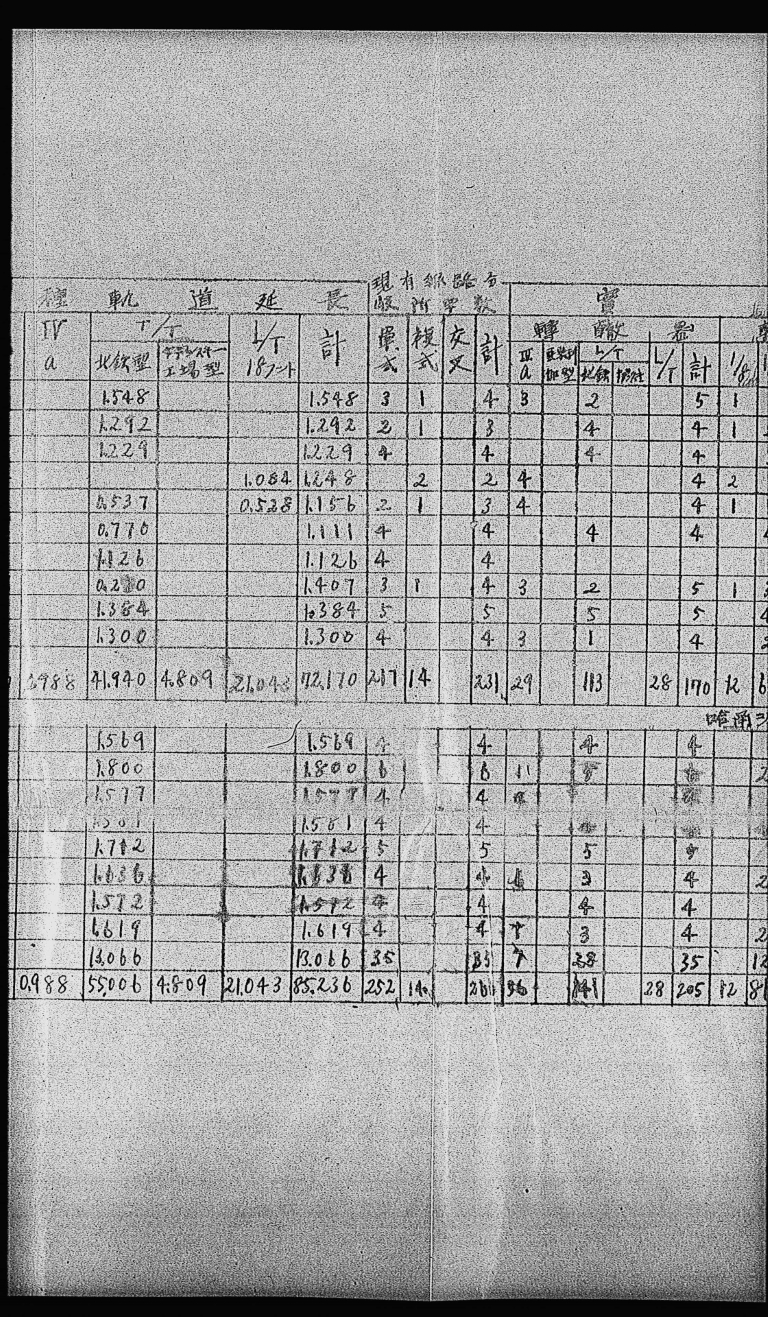 現有線路分
種 軌 道 延 長 岐附帶数 實
轉 轍 器
IV a T/T L/T 計 單式 複式 交叉 計 IV a L/T L/T 計 1/8
北鉄型 工場型 18フート 北鉄
1.548 1.548 3 1 4 3 2 5 1
1.292 1.292 2 1 3 4 4 1
1.229 1.229 4 4 4 4
1.084 1.248 2 2 4 4 2
0.537 0.528 1.156 2 1 3 4 4 1
0.770 1.111 4 4 4 4
1.126 1.126 4 4
1.407 3 1 4 3 2 5 1
1.384 1.384 5 5 5 5
1.300 1.300 4 4 3 1 4
.988 41.940 4.809 21.043 72.170 217 14 231 29 113 28 170 12 6
1.569 1.569 4 4 4 4
1.800 1.800 6 6
1.577 1.577 4 4
1.581 1.581 4 4
1.712 1.712 5 5 5
1.636 1.636 4 4 3 4 2
1.572 1.572 4 4 4
1.619 1.619 4 4 3 4 2
13.066 13.066 35 35 7 28 35 12
0.988 55.006 4.809 21.043 85.236 252 14 141 28 205 12 81